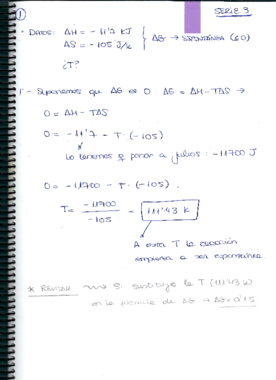 SERIE 3
①
• Datos: ΔH = - 11'7 KJ } ΔG → ESPONTÁNEA (≤0)
ΔS = - 105 J/K
¿T?
1º - Suponemos que ΔG es 0: ΔG = ΔH - TΔS →
0 = ΔH - TΔS
0 = - 11'7 - T · (-105)
lo tenemos q poner a julios: -11700 J
0 = - 11700 - T · (-105).
T = -11700 / -105 = 111'43 K
A esta T la reacción
empieza a ser espontánea.
* Revisar ⟿ Si sustituyo la T (111'43 K)
en la fórmula de ΔG → ΔG = 0'15